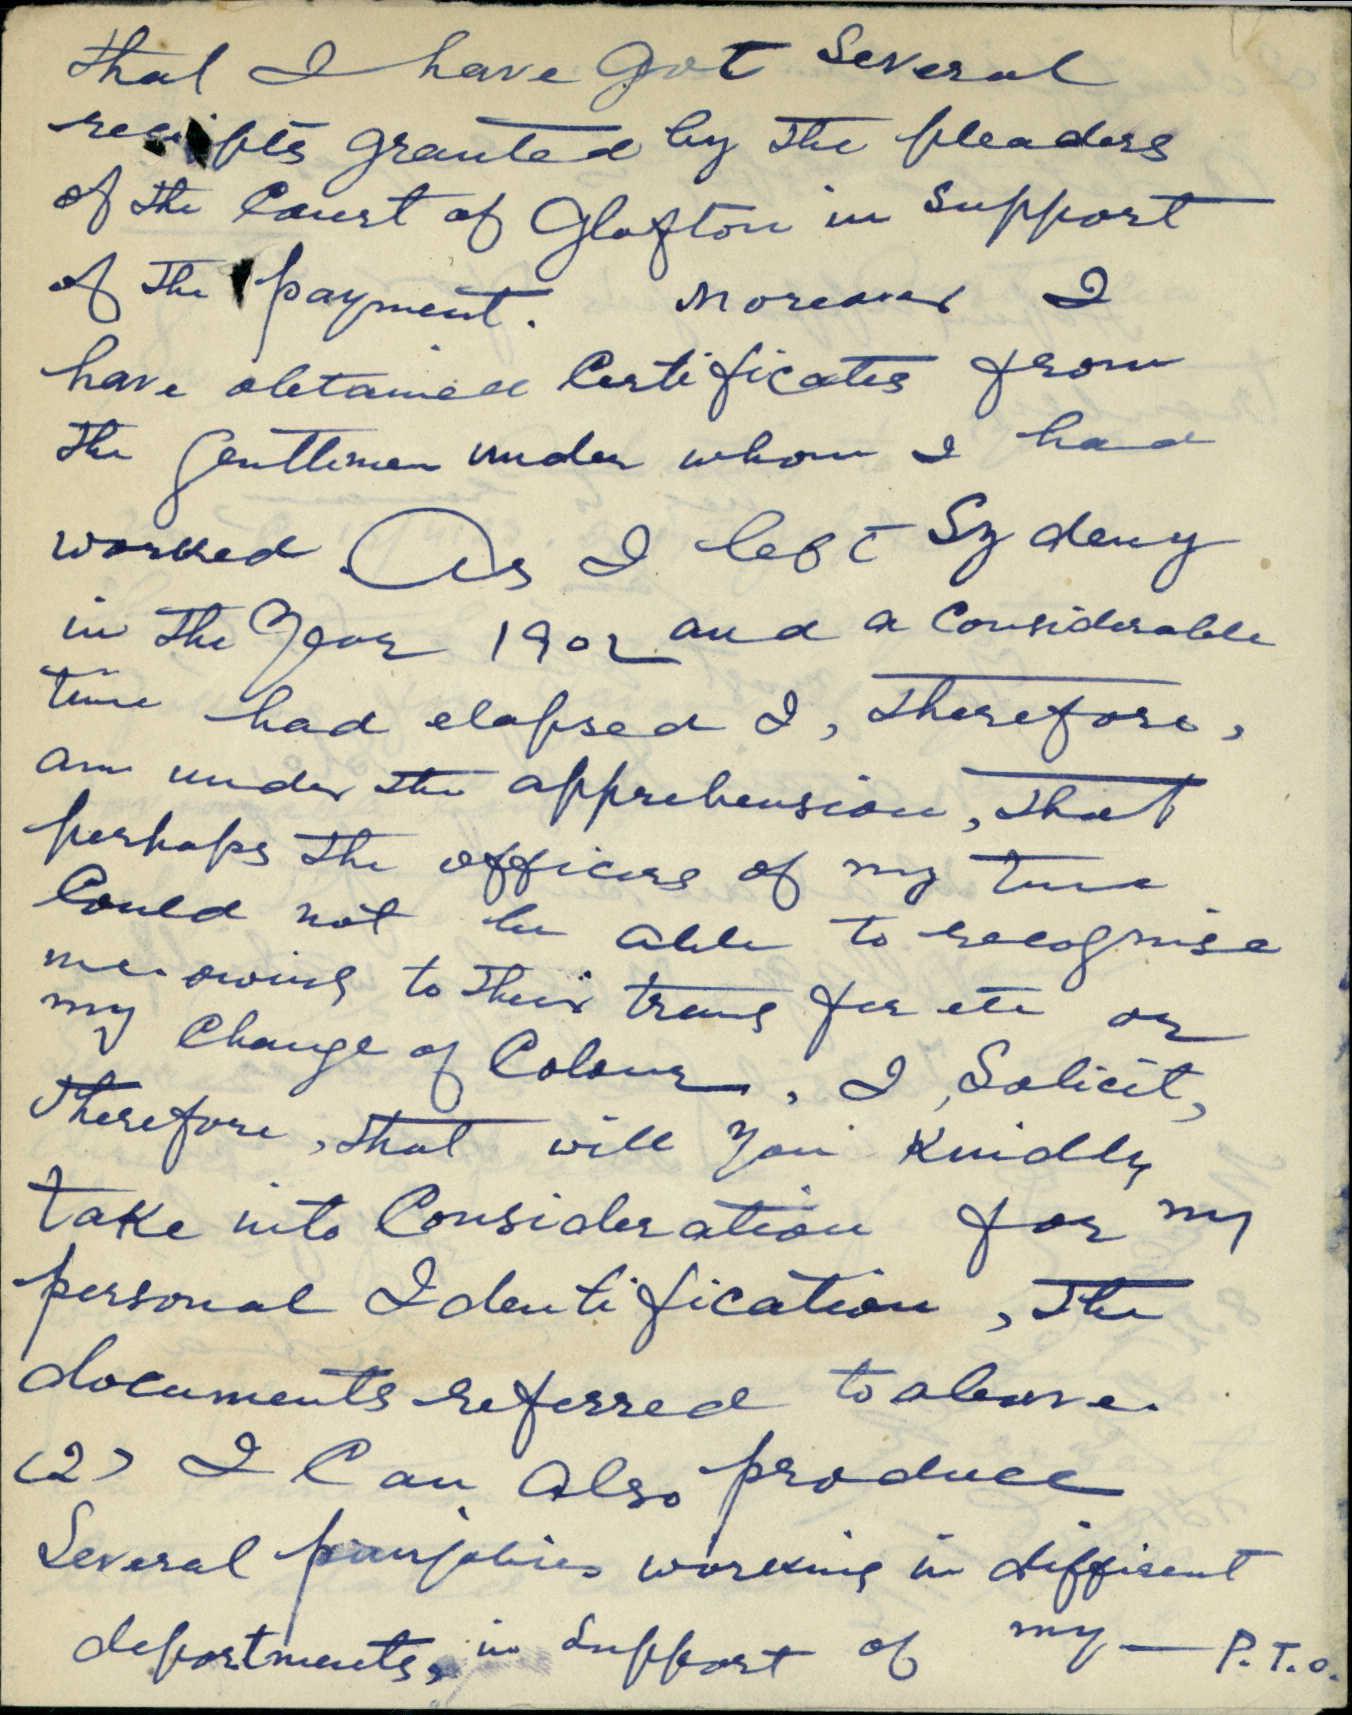 that I have got several
receipts granted by the pleaders
of the Court of Glafton in support
of the payment. Moreover I
have obtained Certificates from
the Gentlemen under whom I had
worked. As I left Sydeny
in the Year 1902 and a Considerable
time had elapsed I, therefore,
am under the apprehension, that
perhaps the officers of my time
Could not be able to recognise
me owing to their transfer etc or
my Change of Colour. I, Solicit,
therefore, that will you Kindly
take into Consideration for my
personal Identification, the
documents referred to above.
(2) I Can also produce
Several panjabies working in different
departments, in support of my — P.T.O.